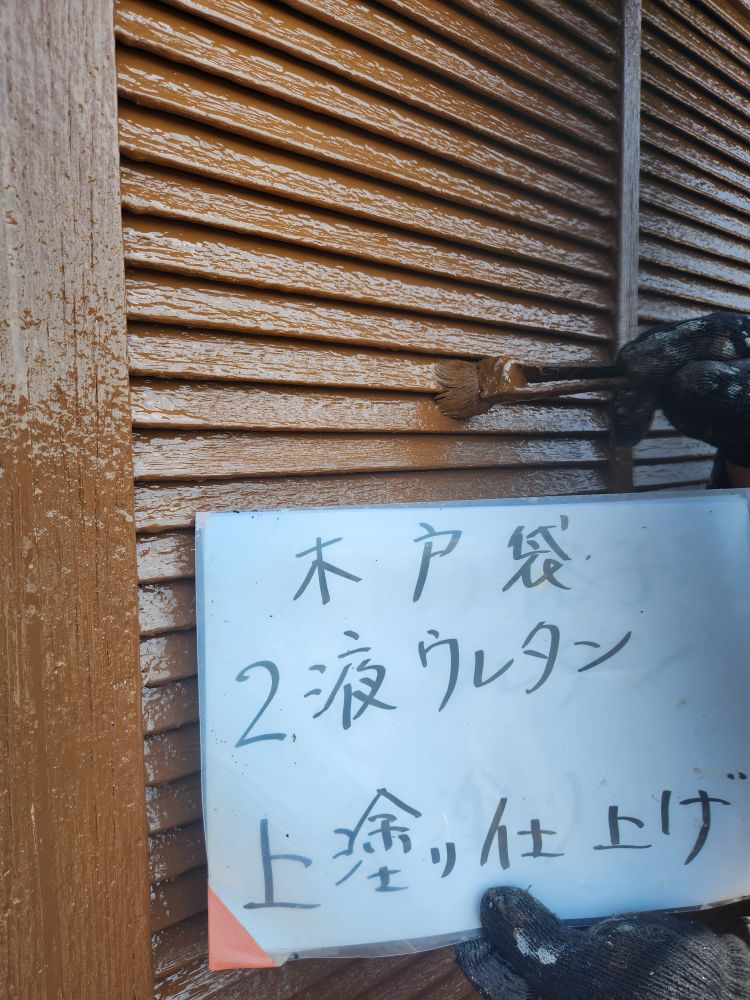 木戸袋
2液ウレタン
上塗り仕上げ